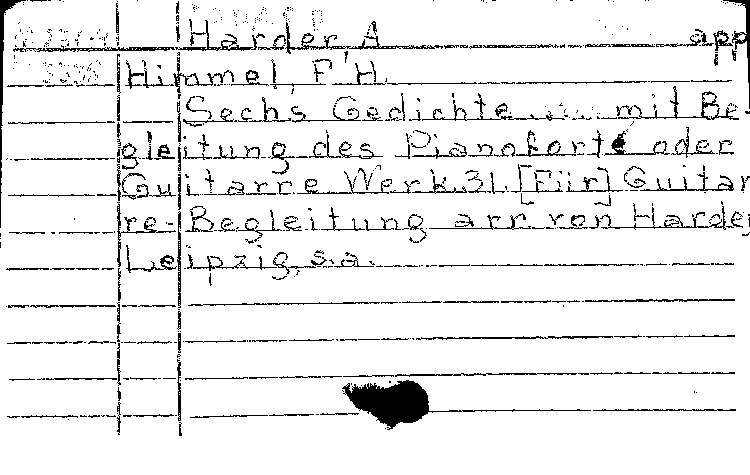 Harder, A app
Himmel, F. H.
Sechs Gedichte ..... mit Be-
gleitung des Pianoforte oder
Guitarre Werk.31. [Für] Guitar
re-Begleitung arr. von Harder
Leipzig, s.a.